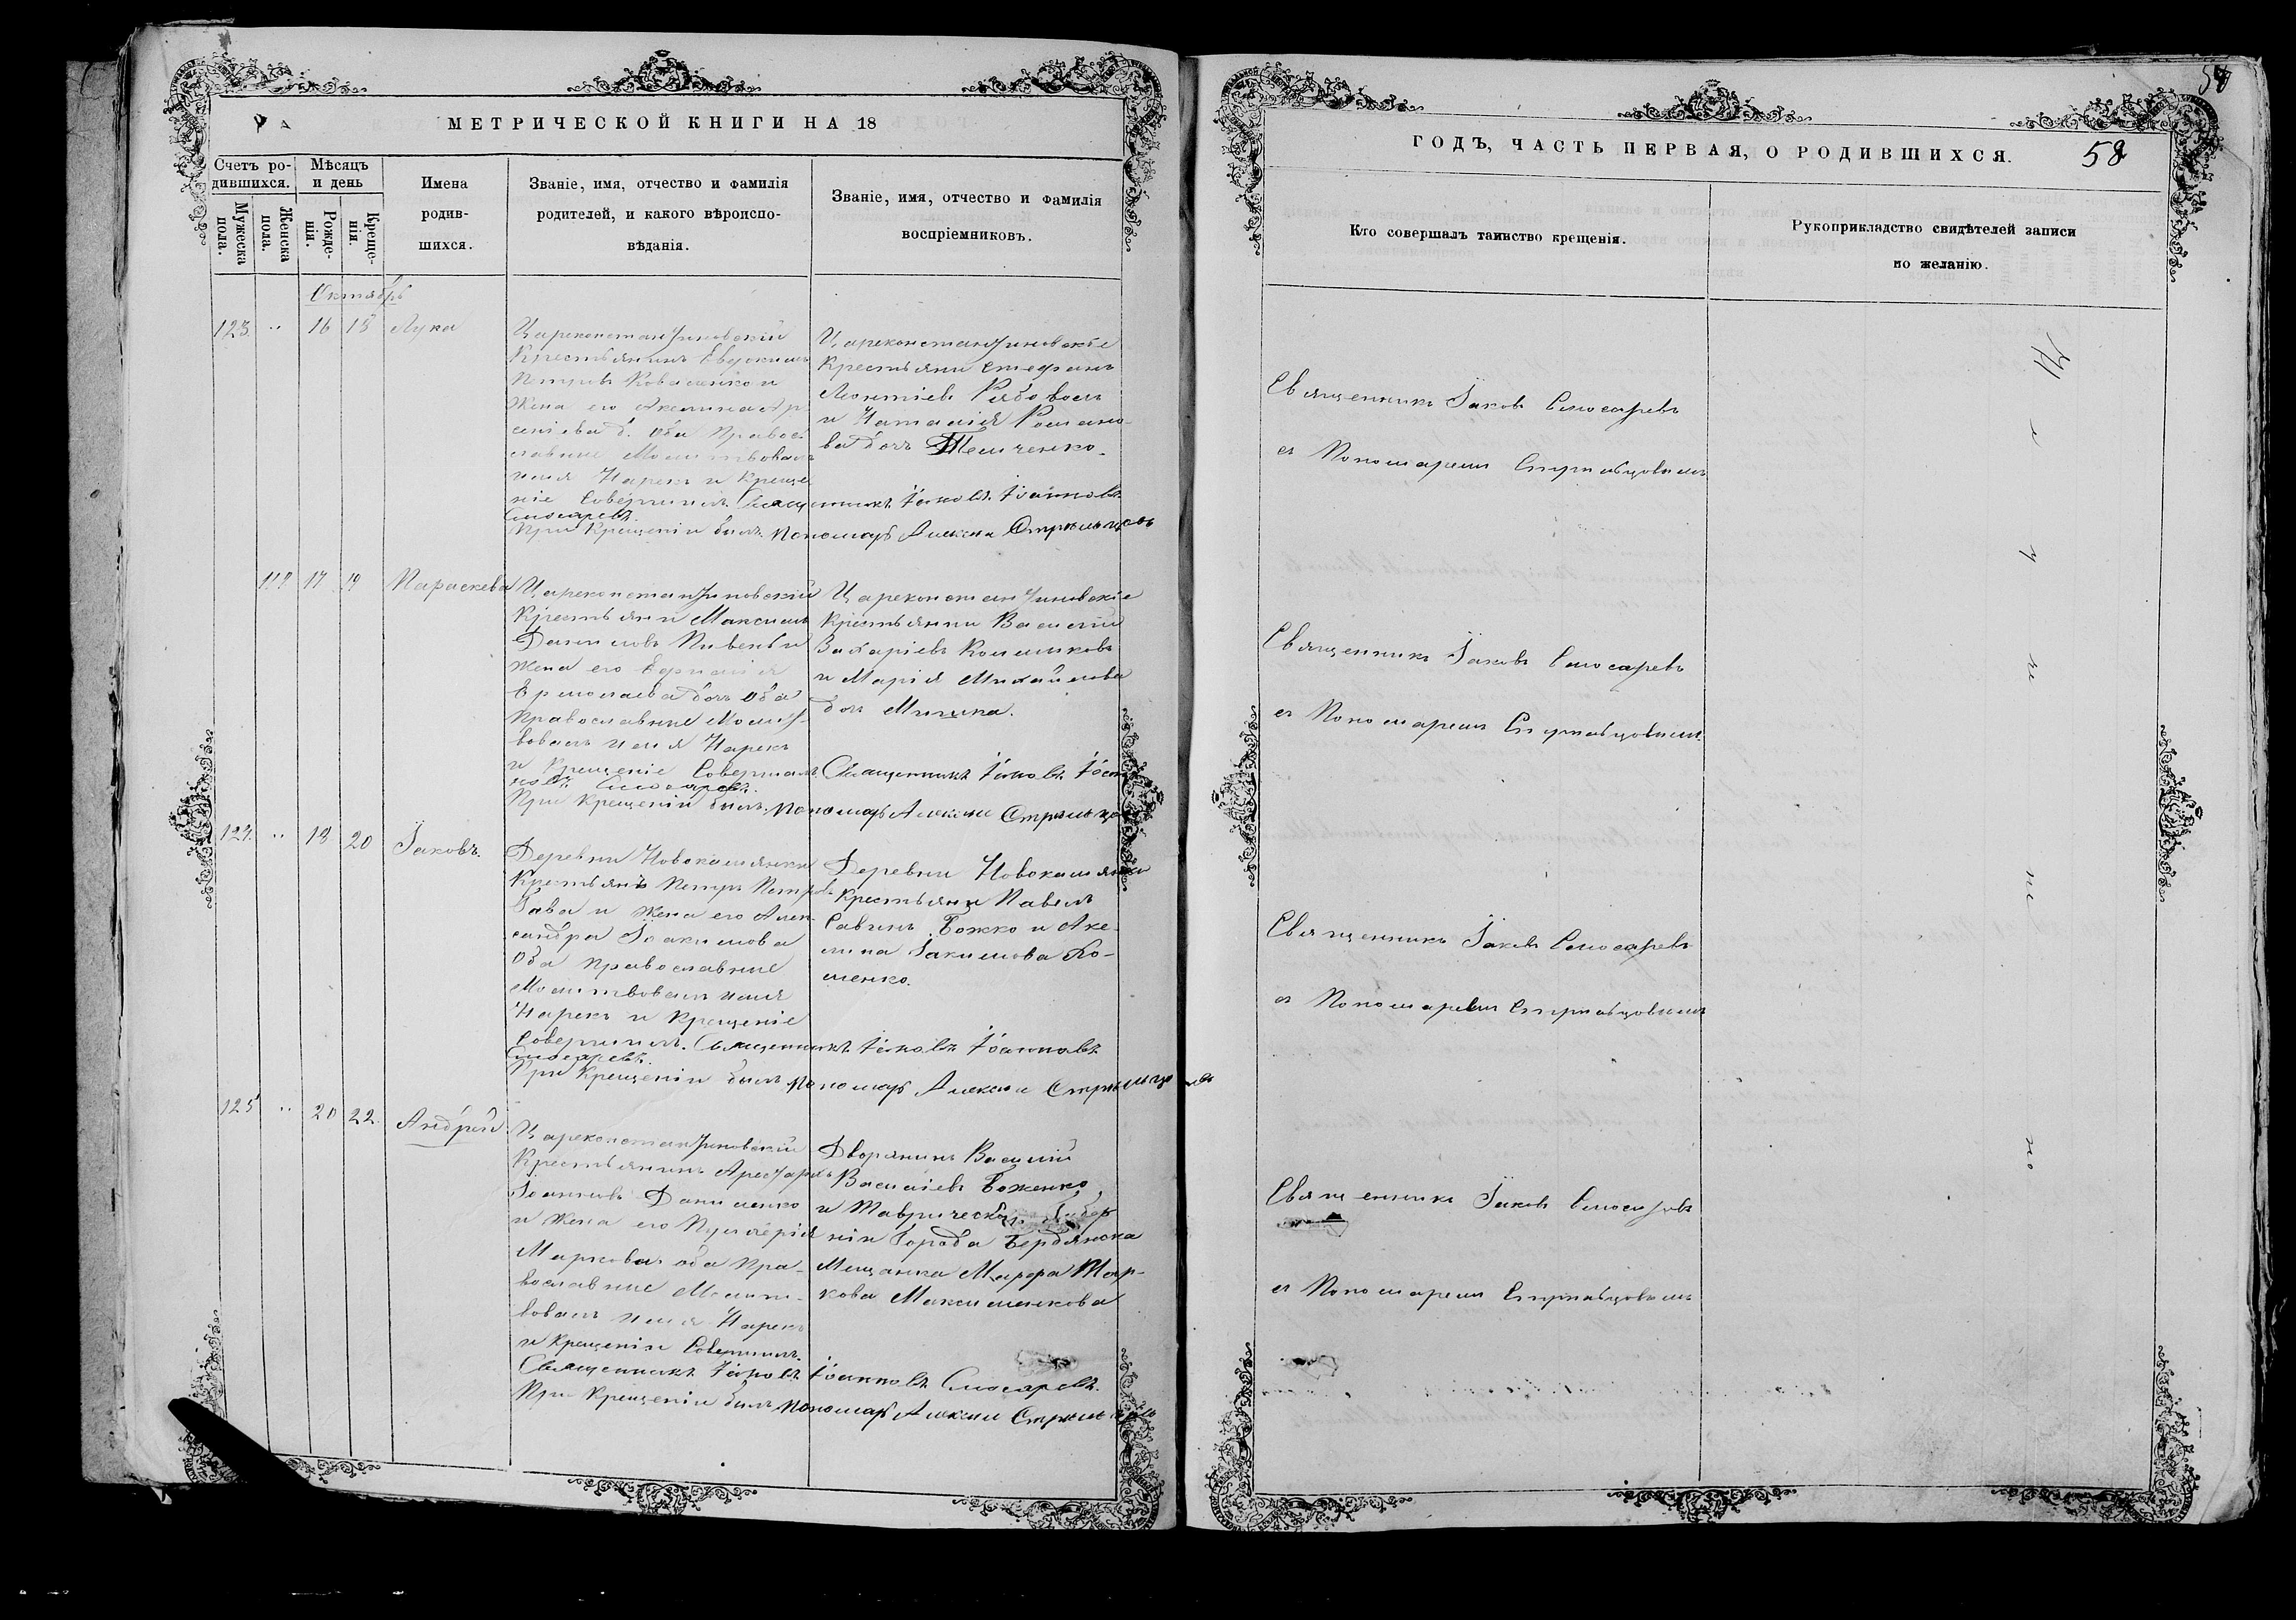 МЕТРИЧЕСКОЙ КНИГИ НА 18
Счетъ ро-
дившихся.
Мѣсяцъ
и день
Мужеска
пола.
Женска
пола.
Рожде-
нія.
Креще-
нія.
Имена
родив-
шихся.
Званіе, имя, отчество и фамилія
родителей, и какого вѣроиспо-
вѣданія.
Званіе, имя, отчество и фамилія
воспріемниковъ.
Октябрь
123. 16 18 Лука
Цареконстантиновскій
Крестьянинъ Евдокимъ
Петровъ Коваленко и
Жена его Акилина Ар
сеніева д. Оба Правос
лавные Молитвовалъ
имя Нарекъ и Креще
ніе Совершилъ Священникъ Іаковъ Іоанновъ
Слюсаревъ.
При Крещеніи былъ Пономарь Алексѣй Стрельцовъ
Цареконстантиновскіе
Крестьяни Стефанъ
Леонтіевъ Рябоволъ
и Наталія Романо-
ва дочь Темченко.
117 17 19 Параскева
Цареконстантиновскій
Крестьяни Максимъ
Даниловъ Пивень и
Жена его
Ермолаева дочь Оба
Православные Молит-
вовалъ имя Нарекъ
и Крещеніе Совершилъ Священникъ Іаковъ Іоан
новъ Слюсаревъ.
При Крещеніи былъ Пономарь Алексѣй Стрельцовъ
Цареконстантиновскіе
Крестьянин Василій
Захаріевъ Колпиковъ
и Марія Михайлова
доч
124. 18 20 Іаковъ.
Деревни Новокамянки
Крестьянъ Петръ Петровъ
Сава и Жена его Алек-
сандра Іоакимова
Оба Православные
Молитвовалъ имя
Нарекъ и Крещеніе
Совершилъ Священникъ Іаковъ Іоанновъ
Слюсаревъ.
При Крещеніи былъ Пономарь Алексѣй Стрельцовъ
Деревни Новокамянки
Крестьяни Павелъ
Савинъ Божко и Аке-
лина Іакимова
менко.
125 20 22. Андрей
Цареконстантиновскій
Крестьянинъ Аристархъ
Іоанновъ Даниленко
и Жена его Пульхерія
Маркова оба Пра-
вославные Молит-
вовалъ имя Нарекъ
и Крещеніи Совершилъ
Священникъ Іаковъ Іоанновъ Слюсаревъ.
При Крещеніи былъ Пономарь Алексѣй Стрельцовъ
Дворянинъ Василій
Василіевъ Боженко
и Таврической Губер
ніи Города Бердянска
Мещанка Марфа Мар-
кова Максименкова
58
ГОДЪ, ЧАСТЬ ПЕРВАЯ, О РОДИВШИХСЯ.
58
Кто совершалъ таинство крещенія.
Рукоприкладство свидѣтелей записи
по желанію.
Священникъ Іаковъ Слюсаревъ
съ Пономаремъ Стрельцовымъ
Священникъ Іаковъ Слюсаревъ
съ Пономаремъ Стрельцовымъ
Священникъ Іаковъ Слюсаревъ
съ Пономаремъ Стрельцовымъ
Священникъ Іаковъ Слюсаревъ
съ Пономаремъ Стрельцовымъ